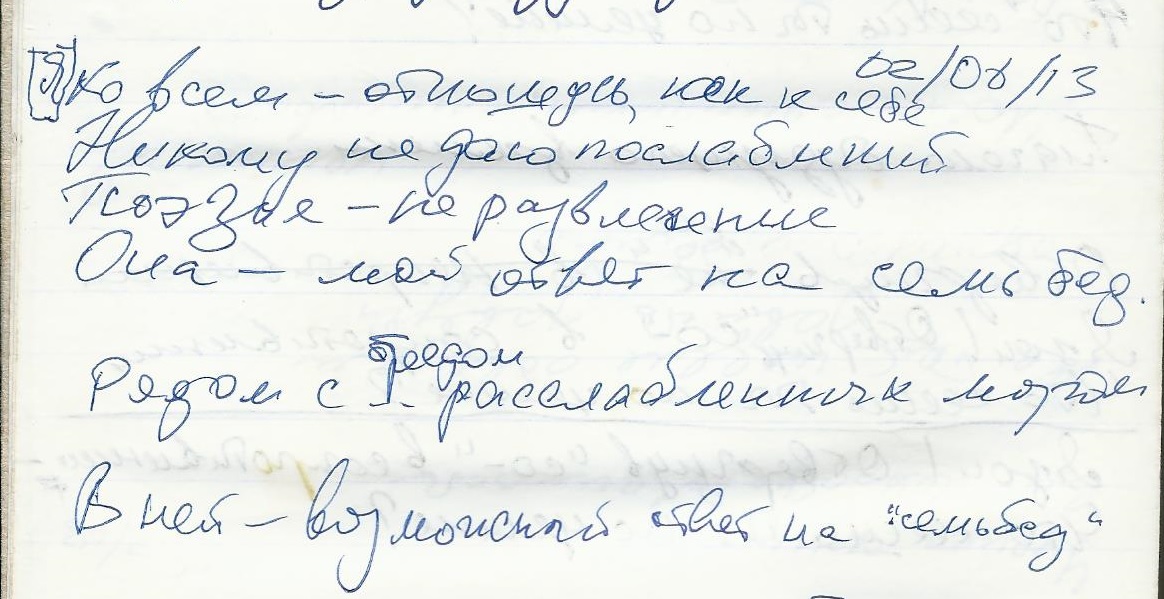 Я Ко всем – отношусь, как к себе 02/08/13
Никому не даю послаблений
Поэзия – не развлечение
Она – мой ответ на семь бед.
бредом
Рядом с расслабленных мозгом
В ней – возможный ответ на "семь бед"